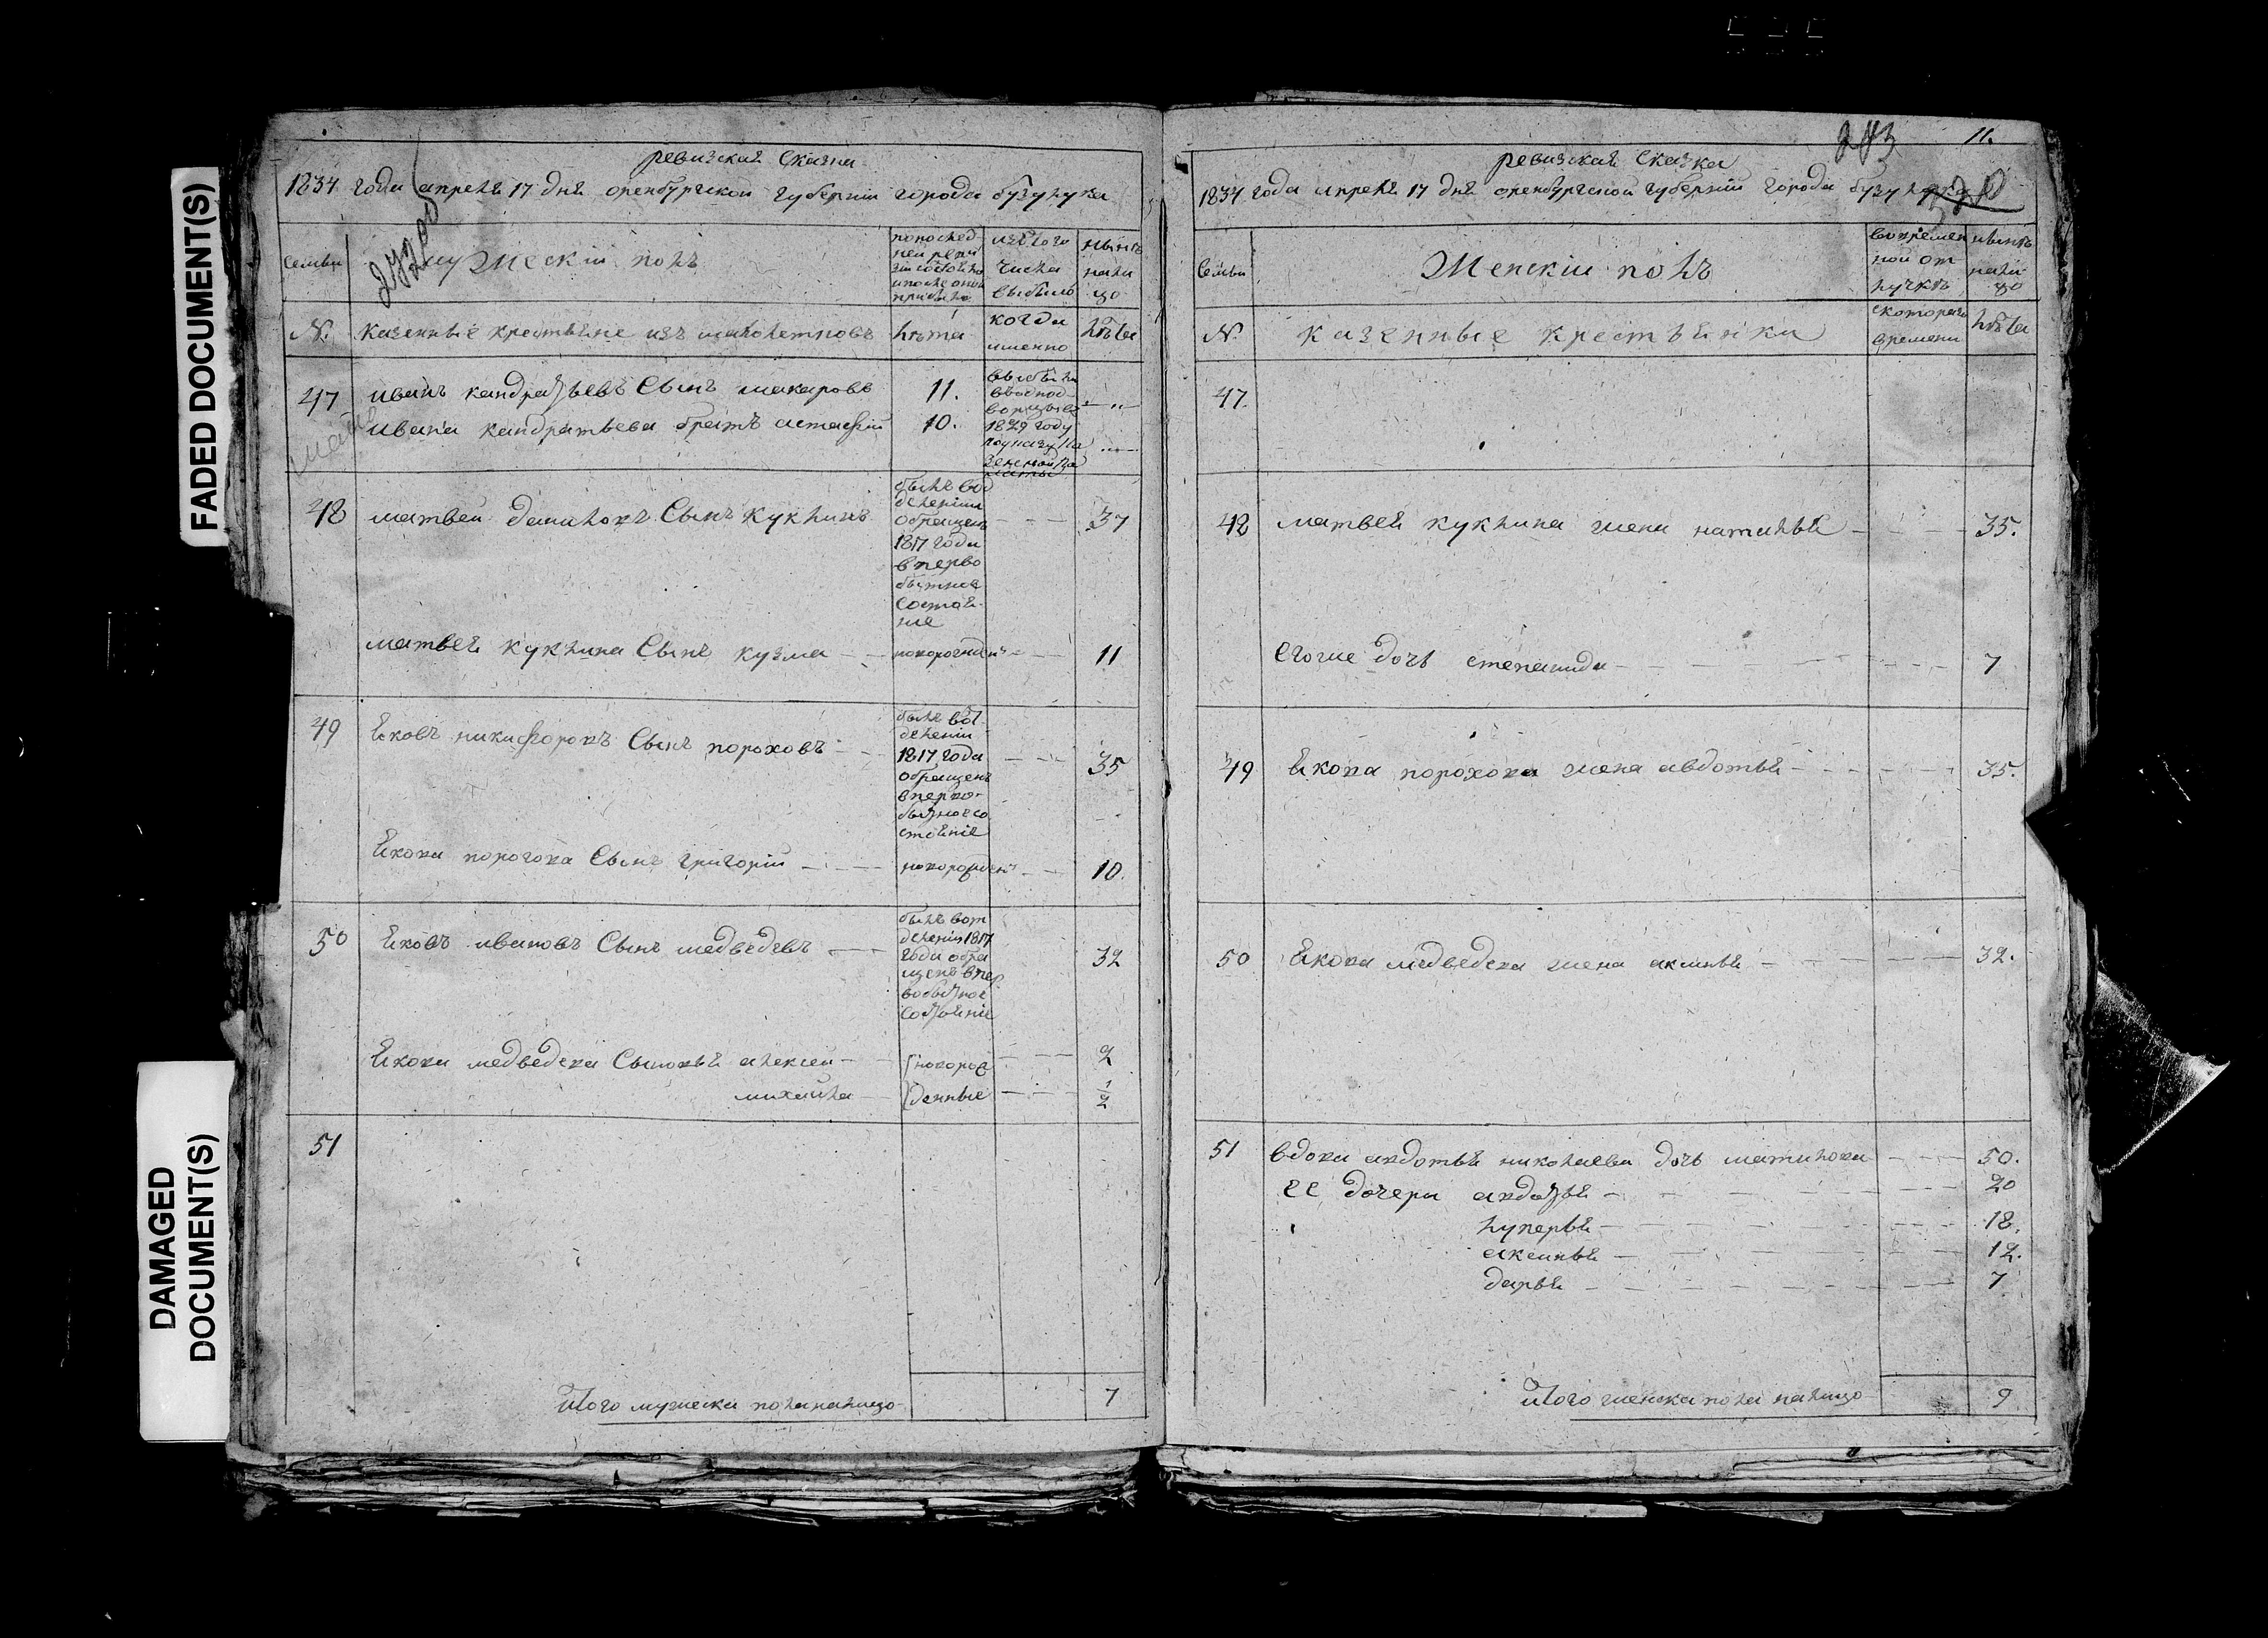 FADED DOCUMENT(S)
DAMAGED
DOCUMENT(S)
ревизская Сказка
1834 года апреля 17 дня оренбургской губернии города бузулука
семьи
мужескiй полъ
по послед-
ней реви
зiи состояло
и после оной
прибыло
изъ того
числа
выбыло
ныне
нали
цо
№.
казенные крестьяне изъ малолетновъ
лета
когда
именно
лета
47
иванъ кандратьевъ Сынъ макаровъ
11.
ивана кандратьева братъ астафiй
10.
1829 году
48
матвей даниловъ Сынъ куклинъ
былъ вод
делении
обращенъ
1817 года
в перво
бытное
состоя-
ние
37
матвея куклина Сынъ кузма
новорожденъ
11
49
Яковъ никифоровъ Сынъ пороховъ
былъ вот
делении
1817 года
обращенъ
в перво-
бытное со
стоянiе
35
Якова порохова Сынъ григорiй
новорожденъ
10.
50
Яковъ ивановъ Сынъ медведевъ
былъ вот
делении 1817
года обра
щенъ в пер
вобытное
состоянiе
32
Якова медведева Сыновья алексей
новорож
2
михайла
денные
1/2
51
Итого мужеска пола налицо
7
283
11.
ревизская Сказка
1834 года апреля 17 дня оренбургской губернiи города бузулука
семьи
Женскiй полъ
во времен
ной от
лучке
ныне
нали-
цо
№.
казенные крестьянки
с которого
времени
лета
47.
48
матвея куклина жена наталья
35.
его же дочь степанида
7
49
Якова порохова жена авдотья
35.
50
Якова медведева жена аксинья
32.
51
вдова авдотья николаева дочь матилова
50.
ее дочери авдотья
20
луперья
18.
аксинья
12.
дарья
7
Итого женска пола налицо
9